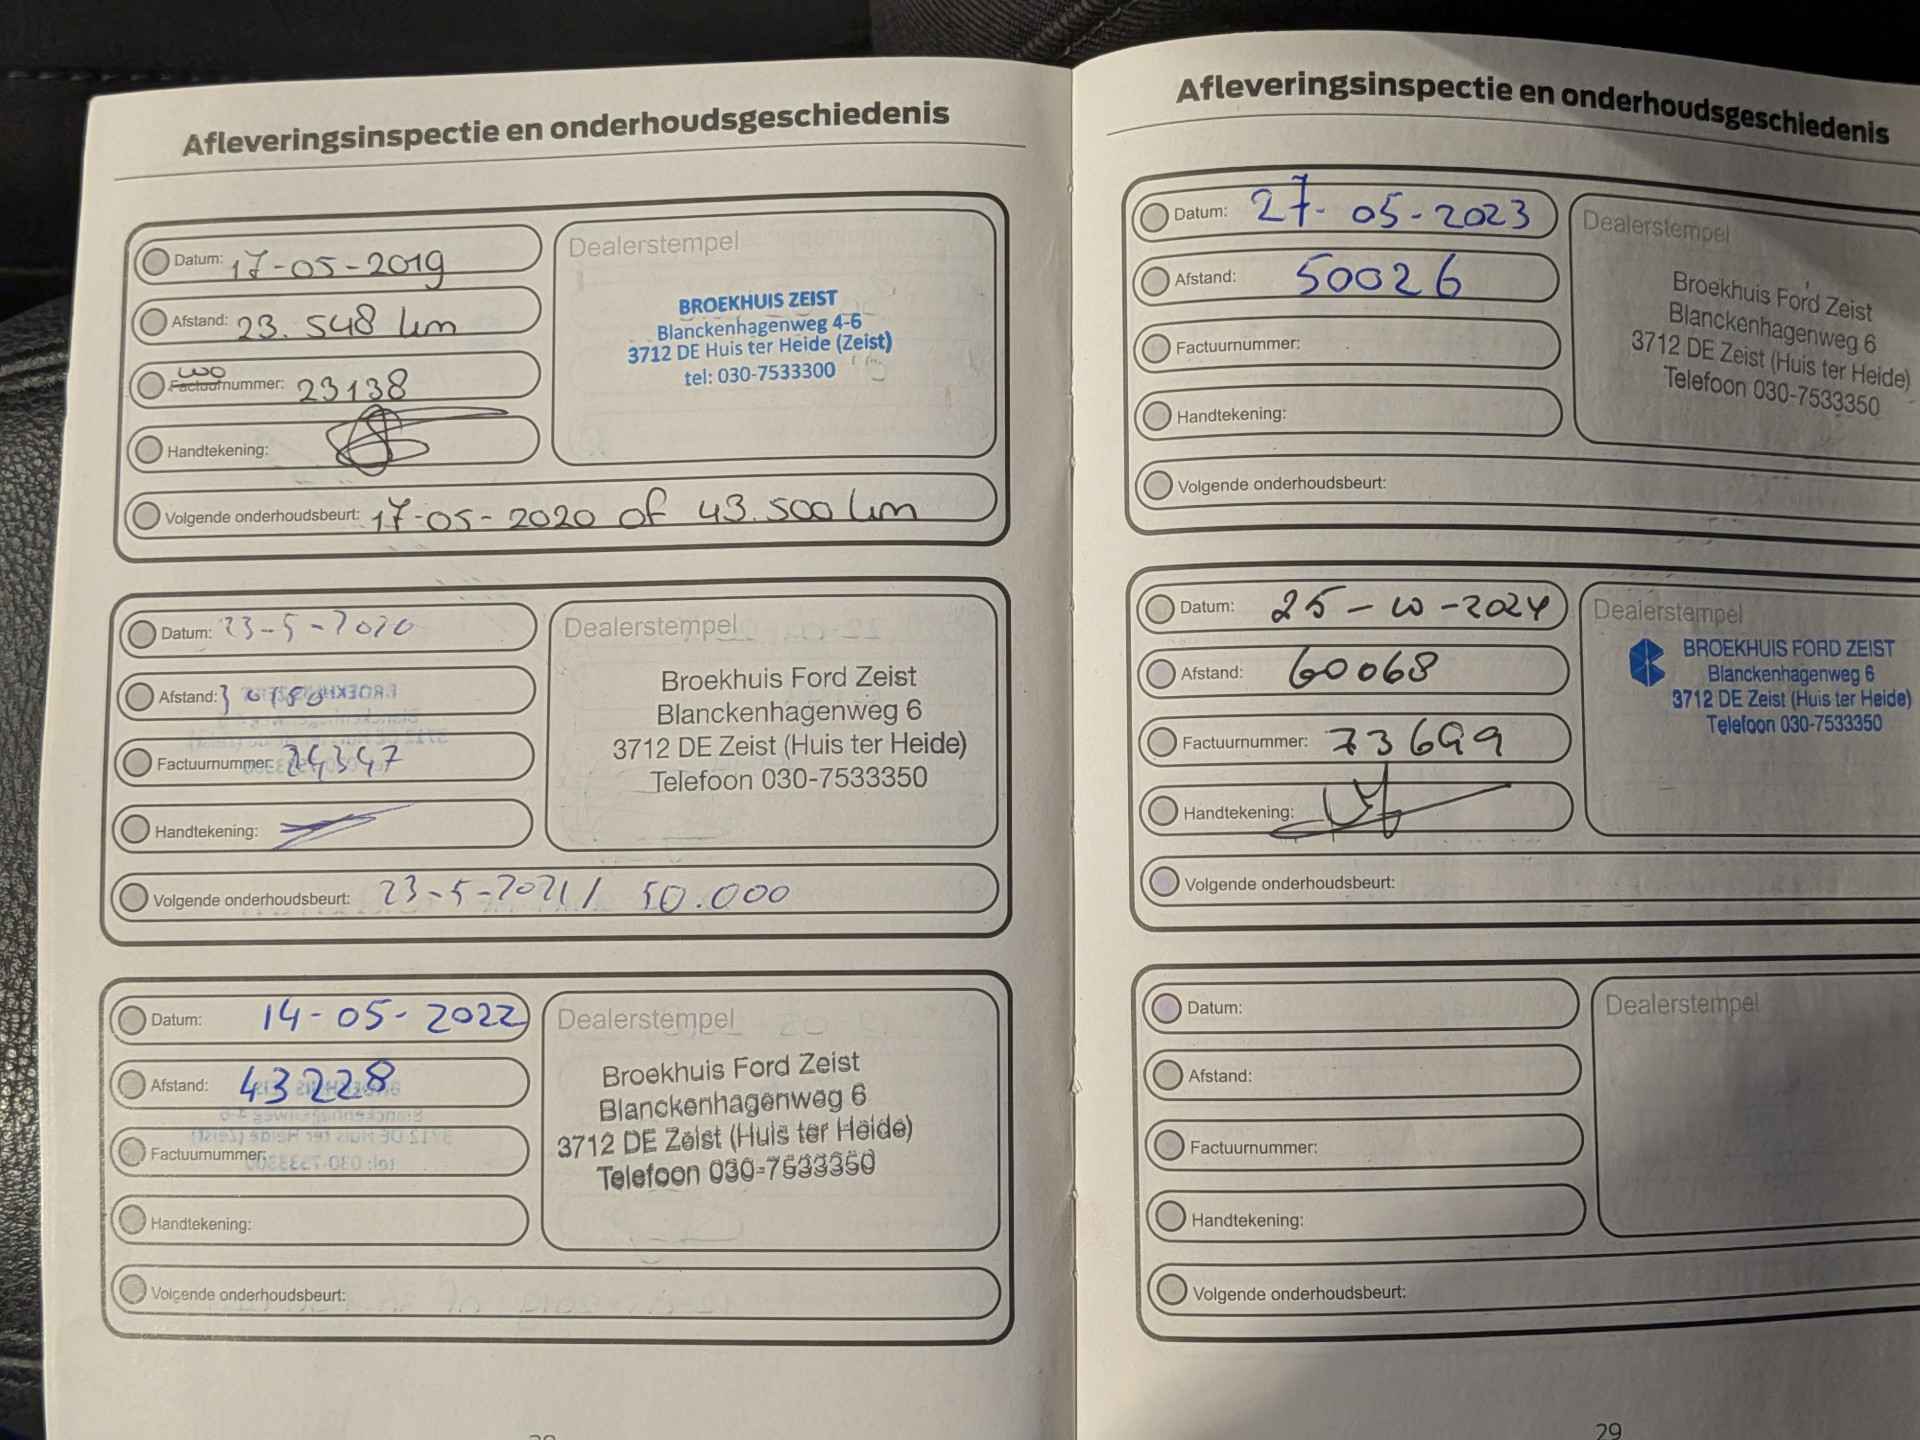 Afleveringsinspectie en onderhoudsgeschiedenis
Datum: 17-05-2019
Afstand: 23.548 km
WO
Factuurnummer: 23138
Handtekening:
Volgende onderhoudsbeurt: 17-05-2020 of 43.500 km
Dealerstempel
BROEKHUIS ZEIST
Blanckenhagenweg 4-6
3712 DE Huis ter Heide (Zeist)
tel: 030-7533300
Datum: 23-5-2020
Afstand:
Factuurnummer: 24347
Handtekening:
Volgende onderhoudsbeurt: 23-5-2021 / 50.000
Dealerstempel
Broekhuis Ford Zeist
Blanckenhagenweg 6
3712 DE Zeist (Huis ter Heide)
Telefoon 030-7533350
Datum: 14-05-2022
Afstand: 43228
Factuurnummer:
Handtekening:
Volgende onderhoudsbeurt:
Dealerstempel
Broekhuis Ford Zeist
Blanckenhagenweg 6
3712 DE Zeist (Huis ter Heide)
Telefoon 030-7533350
Afleveringsinspectie en onderhoudsgeschiedenis
Datum: 27-05-2023
Afstand: 50026
Factuurnummer:
Handtekening:
Volgende onderhoudsbeurt:
Dealerstempel
Broekhuis Ford Zeist
Blanckenhagenweg 6
3712 DE Zeist (Huis ter Heide)
Telefoon 030-7533350
Datum: 25-10-2024
Afstand: 60068
Factuurnummer: 73699
Handtekening:
Volgende onderhoudsbeurt:
Dealerstempel
BROEKHUIS FORD ZEIST
Blanckenhagenweg 6
3712 DE Zeist (Huis ter Heide)
Telefoon 030-7533350
Datum:
Afstand:
Factuurnummer:
Handtekening:
Volgende onderhoudsbeurt:
Dealerstempel
29